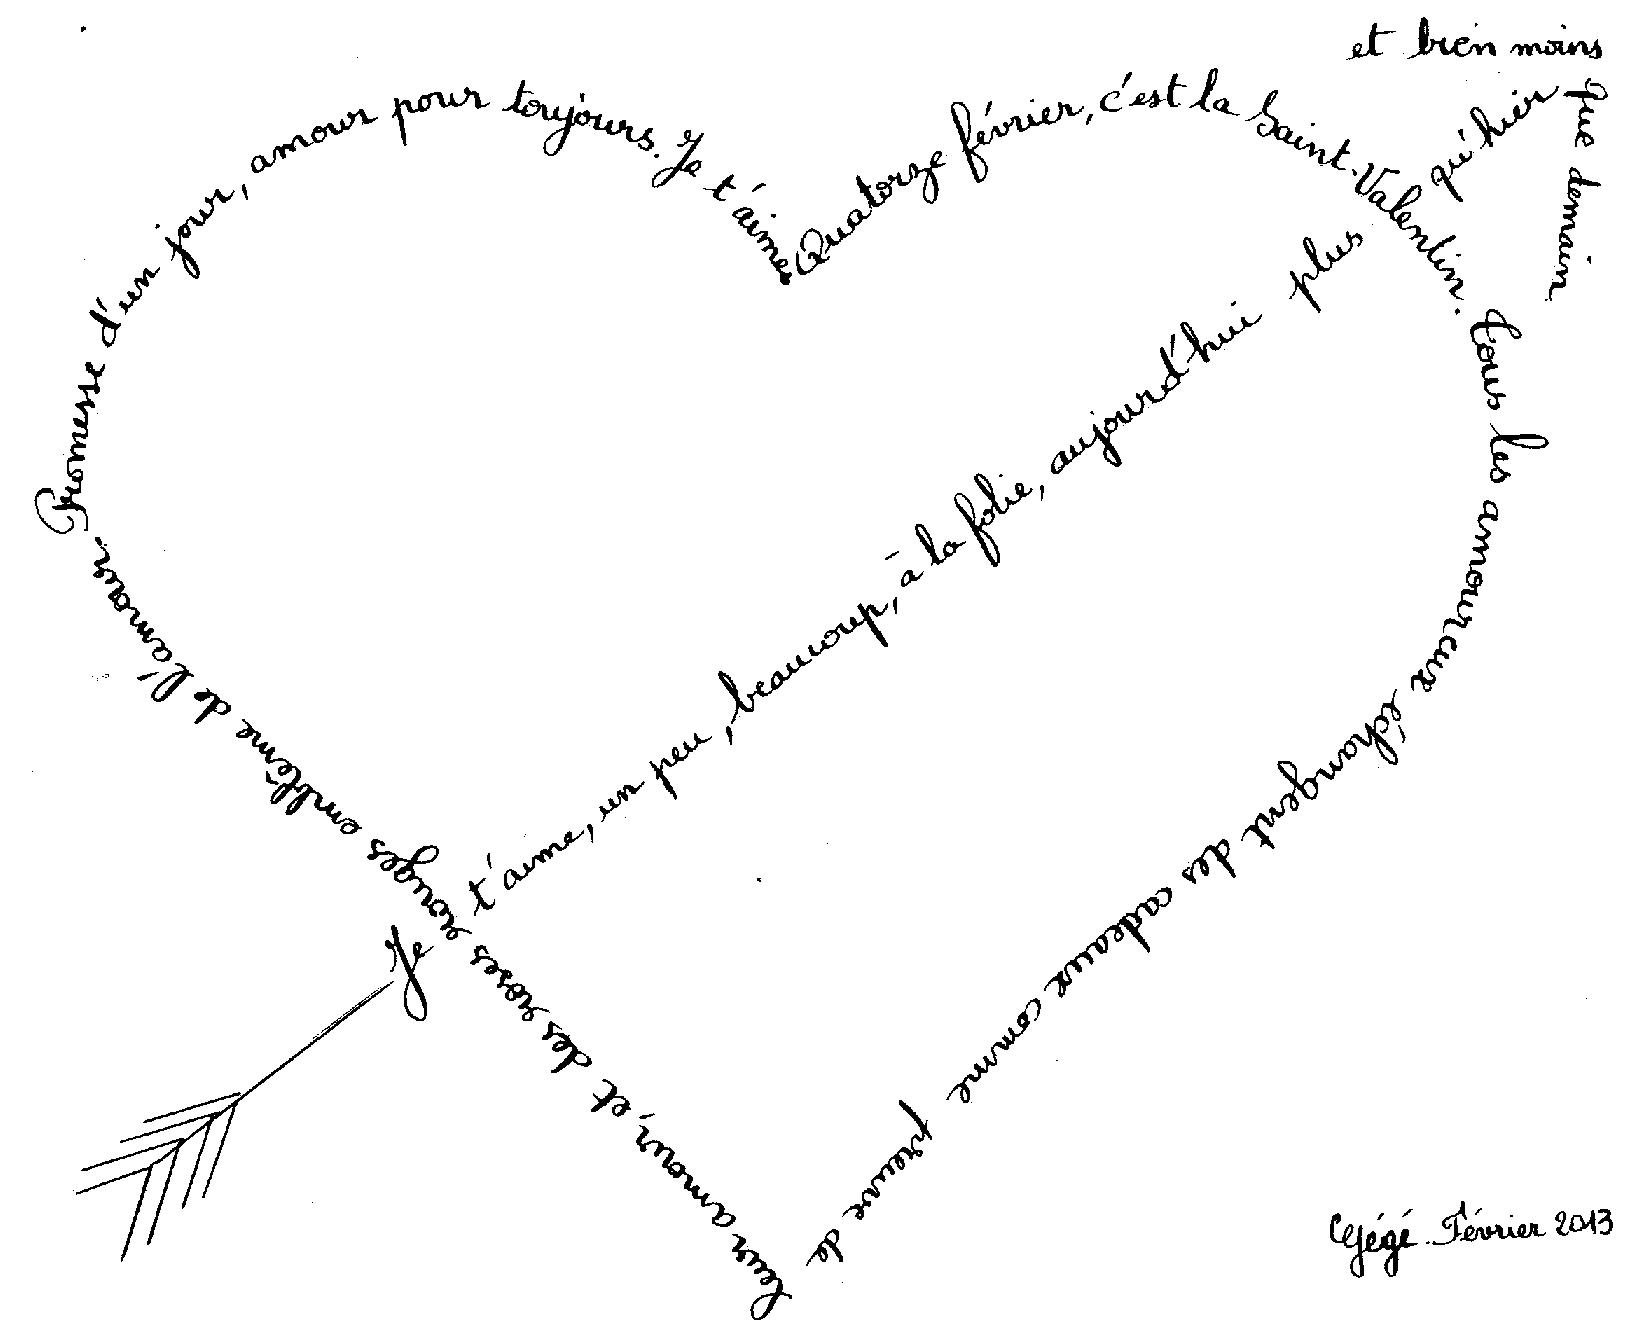 Quatorze février, c'est la Saint-Valentin. Tous les amoureux échangent des cadeaux comme preuve de leur amour, et des roses rouges emblême de l'amour. Promesse d'un jour, amour pour toujours. Je t'aime.
Je t'aime, un peu, beaucoup, à la folie, aujourd'hui plus qu'hier
et bien moins
que demain
Gégé. Février 2013